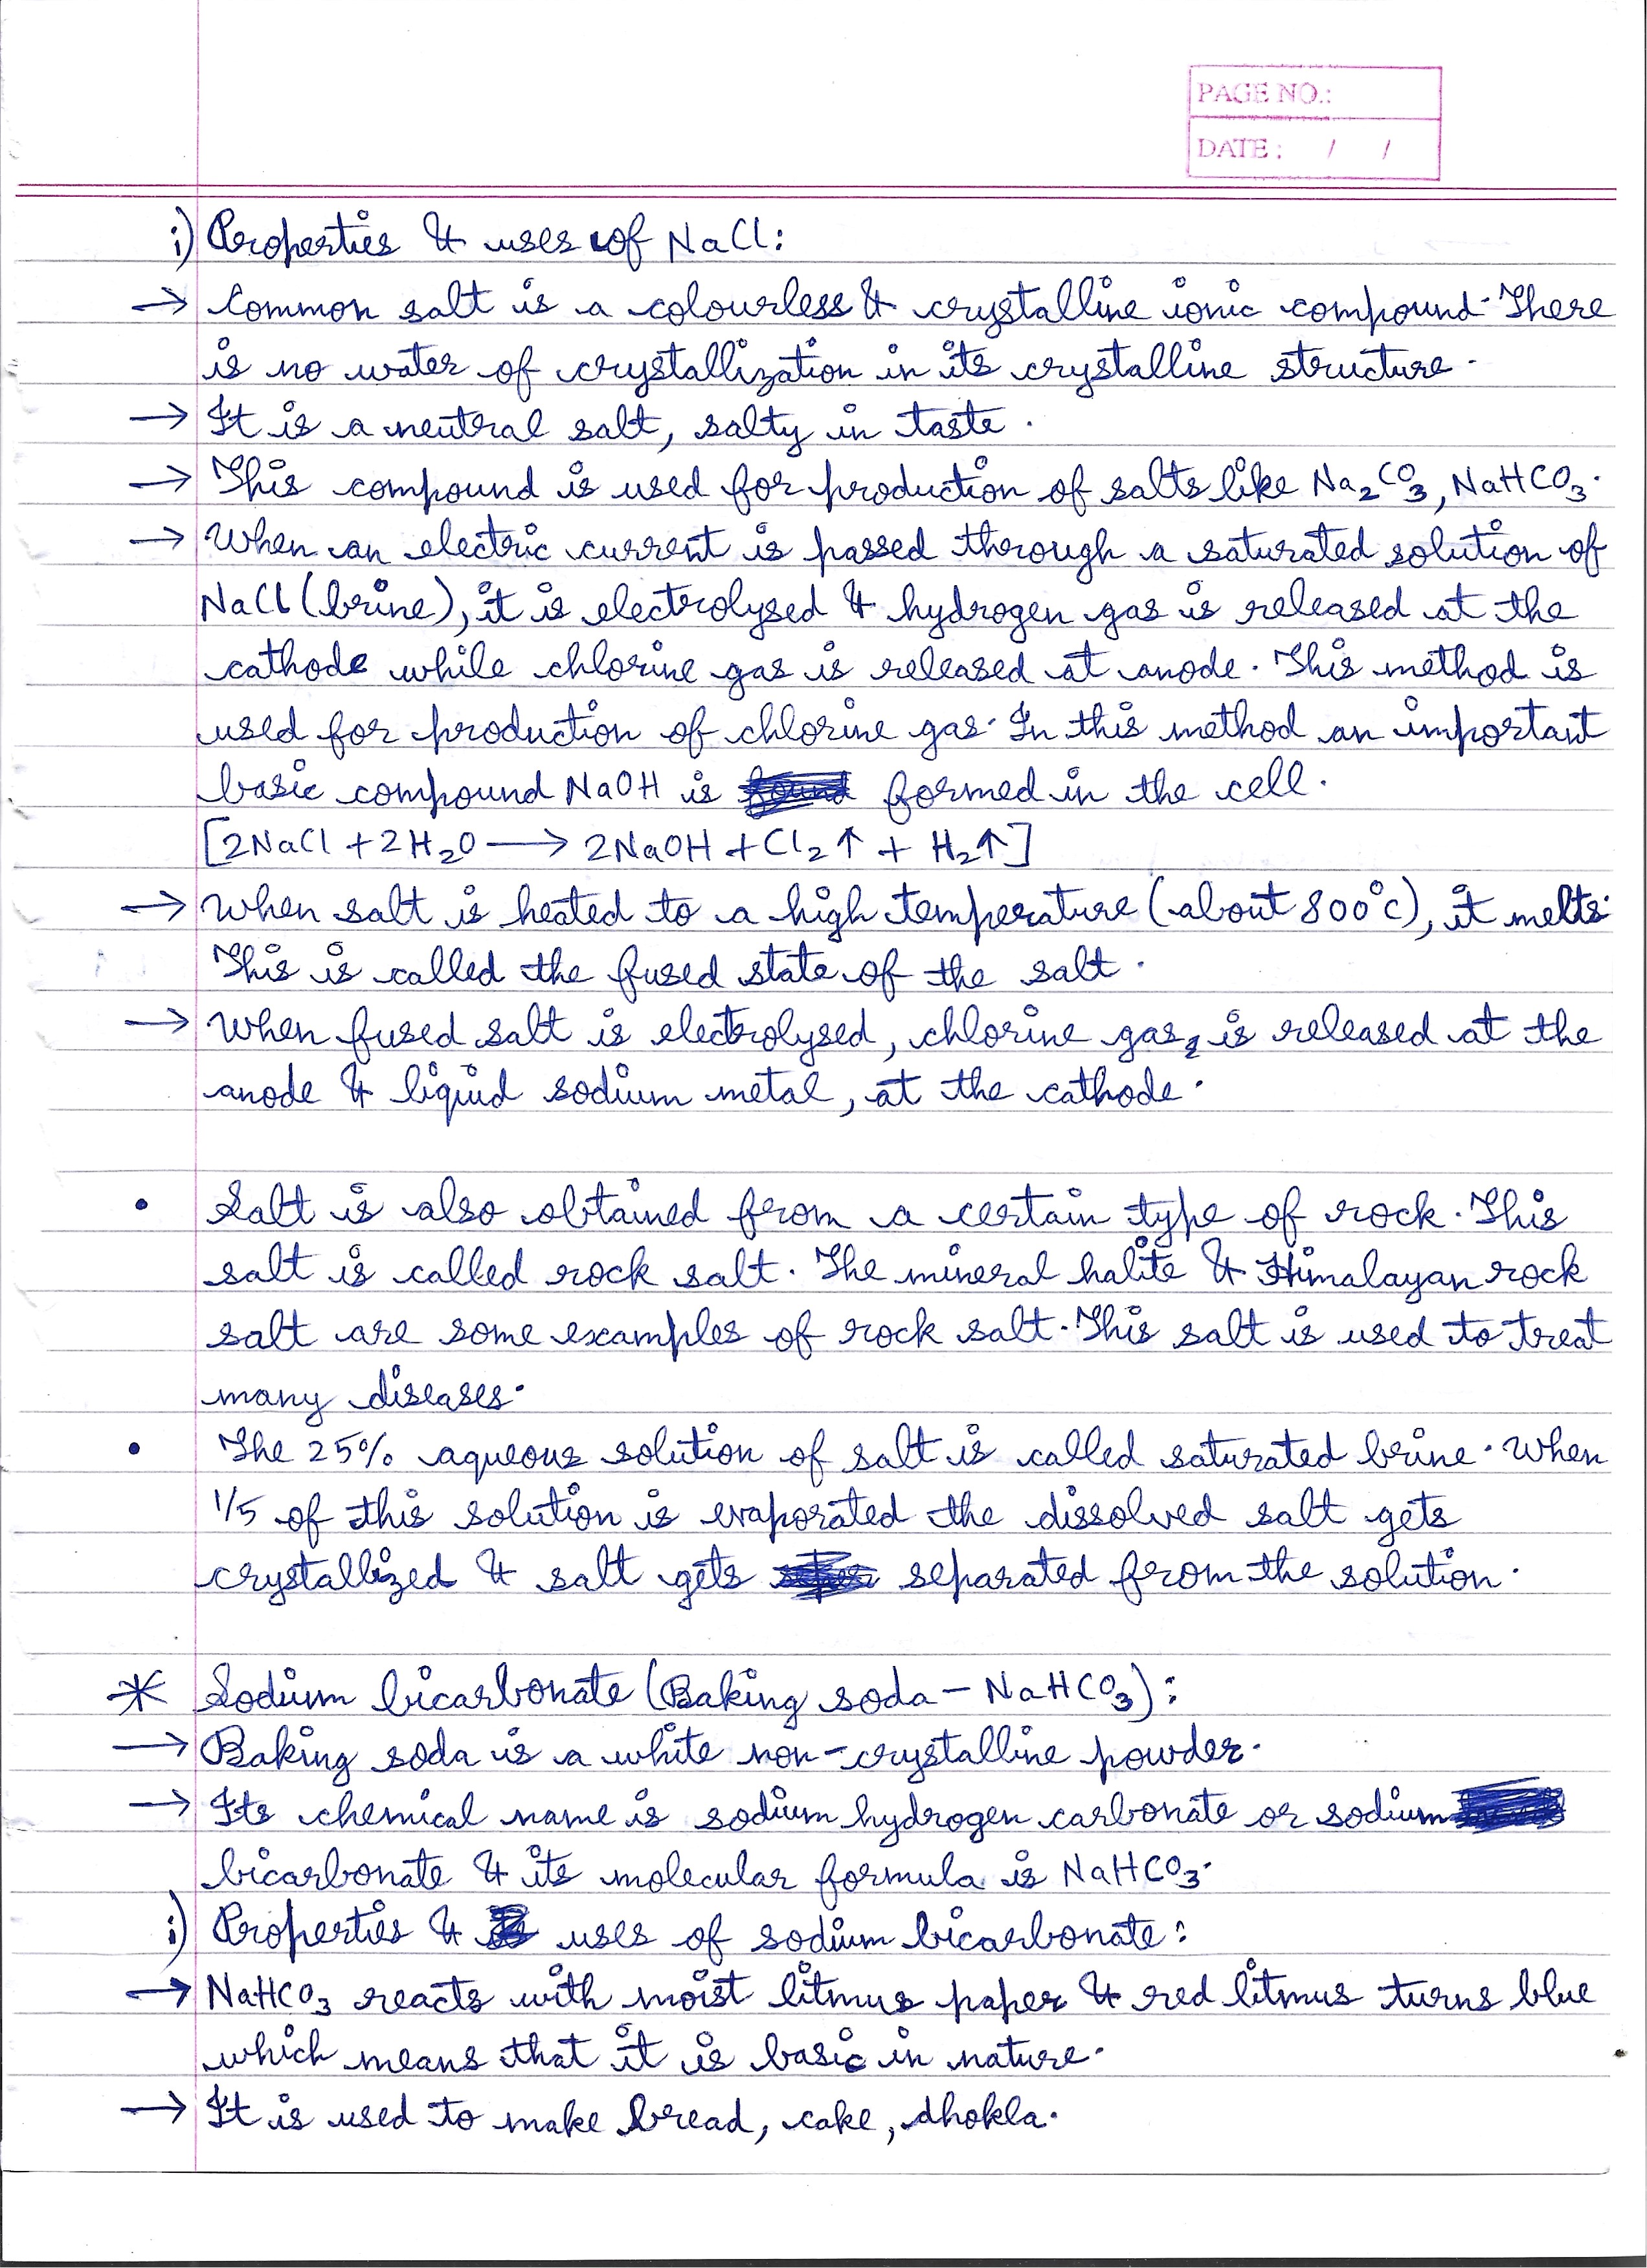 PAGE NO.:
DATE: / /
i) Properties & uses of NaCl:
→ Common salt is a colourless & crystalline ionic compound. There
is no water of crystallization in its crystalline structure.
→ It is a neutral salt, salty in taste.
→ This compound is used for production of salts like Na₂CO₃, NaHCO₃.
→ When an electric current is passed through a saturated solution of
NaCl (brine), it is electrolysed & hydrogen gas is released at the
cathode while chlorine gas is released at anode. This method is
used for production of chlorine gas. In this method an important
basic compound NaOH is formed in the cell.
[2NaCl + 2H₂O → 2NaOH + Cl₂↑ + H₂↑]
→ When salt is heated to a high temperature (about 800°c), it melts.
This is called the fused state of the salt.
→ When fused salt is electrolysed, chlorine gas, is released at the
anode & liquid sodium metal, at the cathode.
• Salt is also obtained from a certain type of rock. This
salt is called rock salt. The mineral halite & Himalayan rock
salt are some examples of rock salt. This salt is used to treat
many diseases.
• The 25% aqueous solution of salt is called saturated brine. When
1/5 of this solution is evaporated the dissolved salt gets
crystallized & salt gets separated from the solution.
* Sodium bicarbonate (Baking soda - NaHCO₃):
→ Baking soda is a white non-crystalline powder.
→ Its chemical name is sodium hydrogen carbonate or sodium
bicarbonate & its molecular formula is NaHCO₃.
i) Properties & uses of sodium bicarbonate:
→ NaHCO₃ reacts with moist litmus paper & red litmus turns blue
which means that it is basic in nature.
→ It is used to make bread, cake, dhokla.